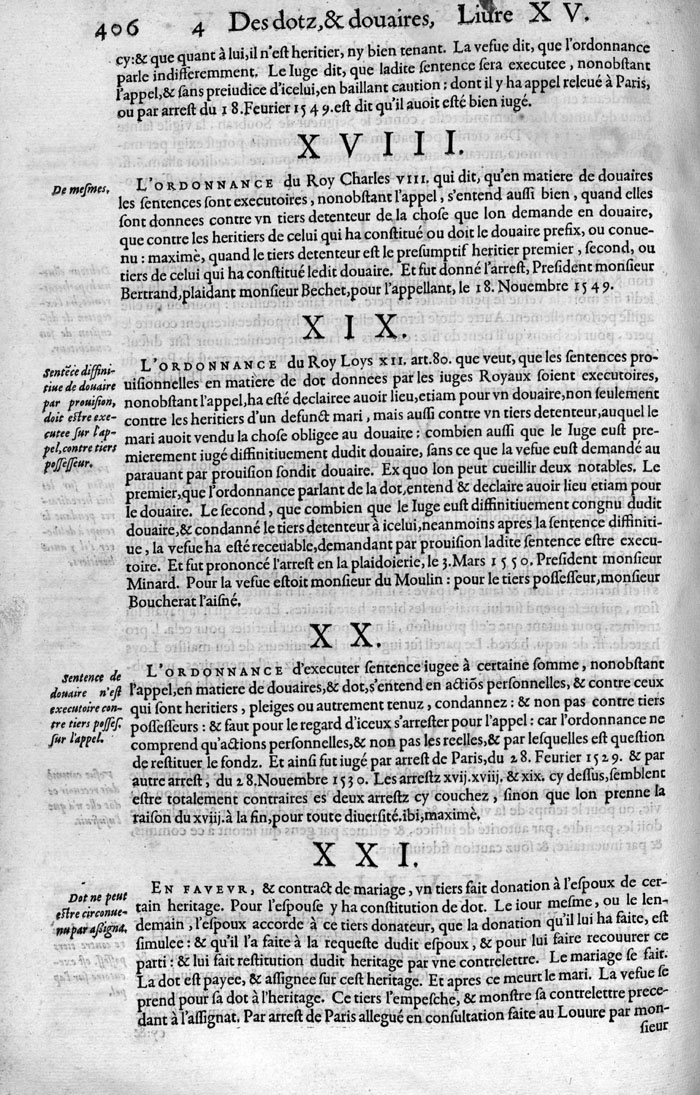 406 4 Des dotz,& douaires, Liure XV.
cy:& que quant à lui,il n'est heritier, ny bien tenant. La vefue dit, que l'ordonnance
parle indifferemment. Le Iuge dit, que ladite sentence sera executee, nonobstant
l'appel,& sans preiudice d'icelui,en baillant caution: dont il y ha appel releué à Paris,
ou par arrest du 18.Feurier 1549.est dit qu'il auoit esté bien iugé.
XVIII.
De mesmes,
L'ORDONNANCE du Roy Charles VIII. qui dit, qu'en matiere de douaires
les sentences sont executoires, nonobstant l'appel, s'entend aussi bien, quand elles
sont donnees contre vn tiers detenteur de la chose que lon demande en douaire,
que contre les heritiers de celui qui ha constitué ou doit le douaire prefix, ou conue-
nu: maximè, quand le tiers detenteur est le presumptif heritier premier, second, ou
tiers de celui qui ha constitué ledit douaire. Et fut donné l'arrest, President monsieur
Bertrand,plaidant monsieur Bechet,pour l'appellant, le 18. Nouembre 1549.
XIX.
Sentẽce diffini-
tiue de douaire
par prouision,
doit estre exe-
cutee sur l'ap-
pel,contre tiers
possesseur.
L'ORDONNANCE du Roy Loys XII. art.80. que veut, que les sentences pro-
uisionnelles en matiere de dot donnees par les iuges Royaux soient executoires,
nonobstant l'appel,ha esté declairee auoir lieu,etiam pour vn douaire,non seulement
contre les heritiers d'un defunct mari, mais aussi contre vn tiers detenteur,auquel le
mari auoit vendu la chose obligee au douaire: combien aussi que le Iuge eust pre-
mierement iugé diffinitiuement dudit douaire, sans ce que la vefue eust demandé au
parauant par prouision sondit douaire. Ex quo lon peut cueillir deux notables. Le
premier,que l'ordonnance parlant de la dot,entend & declaire auoir lieu etiam pour
le douaire. Le second, que combien que le Iuge eust diffinitiuement congnu dudit
douaire,& condanné le tiers detenteur à icelui,neanmoins apres la sentence diffiniti-
ue, la vefue ha esté receuable,demandant par prouision ladite sentence estre execu-
toire. Et fut prononcé l'arrest en la plaidoierie, le 3.Mars 1550. President monsieur
Minard. Pour la vefue estoit monsieur du Moulin: pour le tiers possesseur,monsieur
Boucherat l'aisné.
XX.
Sentence de
douaire n'est
executoire con-
tre tiers posses.
sur l'appel.
L'ORDONNANCE d'executer sentence iugee à certaine somme, nonobstant
l'appel,en matiere de douaires,& dot,s'entend en actiõs personnelles, & contre ceux
qui sont heritiers, pleiges ou autrement tenuz, condannez: & non pas contre tiers
possesseurs: & faut pour le regard d'iceux s'arrester pour l'appel: car l'ordonnance ne
comprend qu'actions personnelles,& non pas les reelles,& par lesquelles est question
de restituer le fondz. Et ainsi fut iugé par arrest de Paris,du 28. Feurier 1529. & par
autre arrest, du 28.Nouembre 1530. Les arrestz xvij.xviij. & xix. cy dessus,semblent
estre totalement contraires es deux arrestz cy couchez, sinon que lon prenne la
raison du xviij.à la fin,pour toute diuersité.ibi,maximè.
XXI.
Dot ne peut
estre circonue-
nu par assigna.
EN FAVEVR, & contract de mariage, vn tiers fait donation à l'espoux de cer-
tain heritage. Pour l'espouse y ha constitution de dot. Le iour mesme, ou le len-
demain, l'espoux accorde à ce tiers donateur, que la donation qu'il lui ha faite, est
simulee: & qu'il l'a faite à la requeste dudit espoux, & pour lui faire recouurer ce
parti: & lui fait restitution dudit heritage par vne contrelettre. Le mariage se fait.
La dot est payee, & assignee sur cest heritage. Et apres ce meurt le mari. La vefue se
prend pour sa dot à l'heritage. Ce tiers l'empesche, & monstre sa contrelettre prece-
dant à l'assignat. Par arrest de Paris allegué en consultation faite au Louure par mon-
sieur